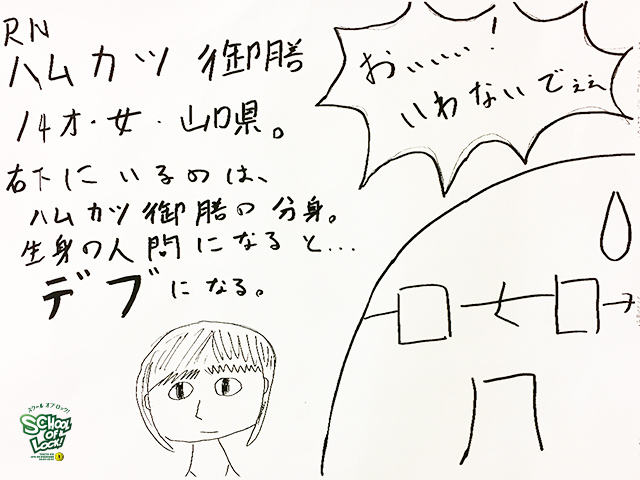 RN
ハムカツ 御膳
14才・女・山口県。
右下にいるのは、
ハムカツ御膳の分身。
生身の人間になると…
デブになる。
おぃぃぃ!
いわないでぇぇ
スクール オブ ロック!
SCHOOL
OF
LOCK!